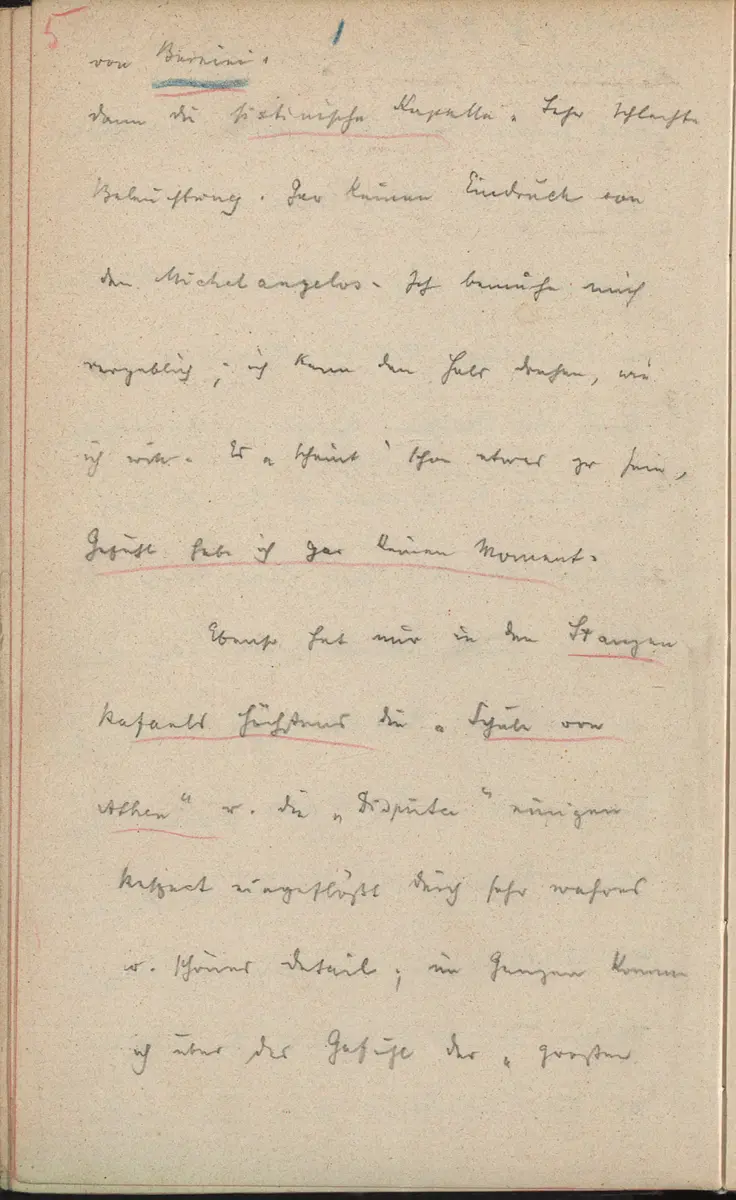 5
1
von Bernini.
dann die sixtinische Kapelle. Sehr schlechte
Beleuchtung. Gar keinen Eindruck von
den Michelangelos. Ich bemühe mich
vergeblich; ich kann den Hals drehen, wie
ich will. Es „scheint“ schon etwas zu sein,
Gefühl habe ich gar keinen Moment.
Ebenso hat mir in den Stanzen
Rafaels höchstens die „Schule von
Athen“ u. die „Disputa“ einigen
Respect eingeflößt durch sehr wahres
u. schönes Detail; im Ganzen komme
ich über das Gefühl der „großen